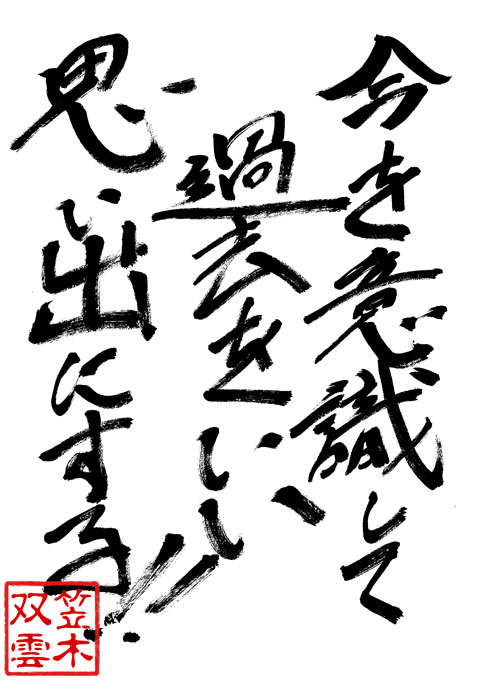 今を意識して
過去をいい
思い出にする!!
笠木
双雲